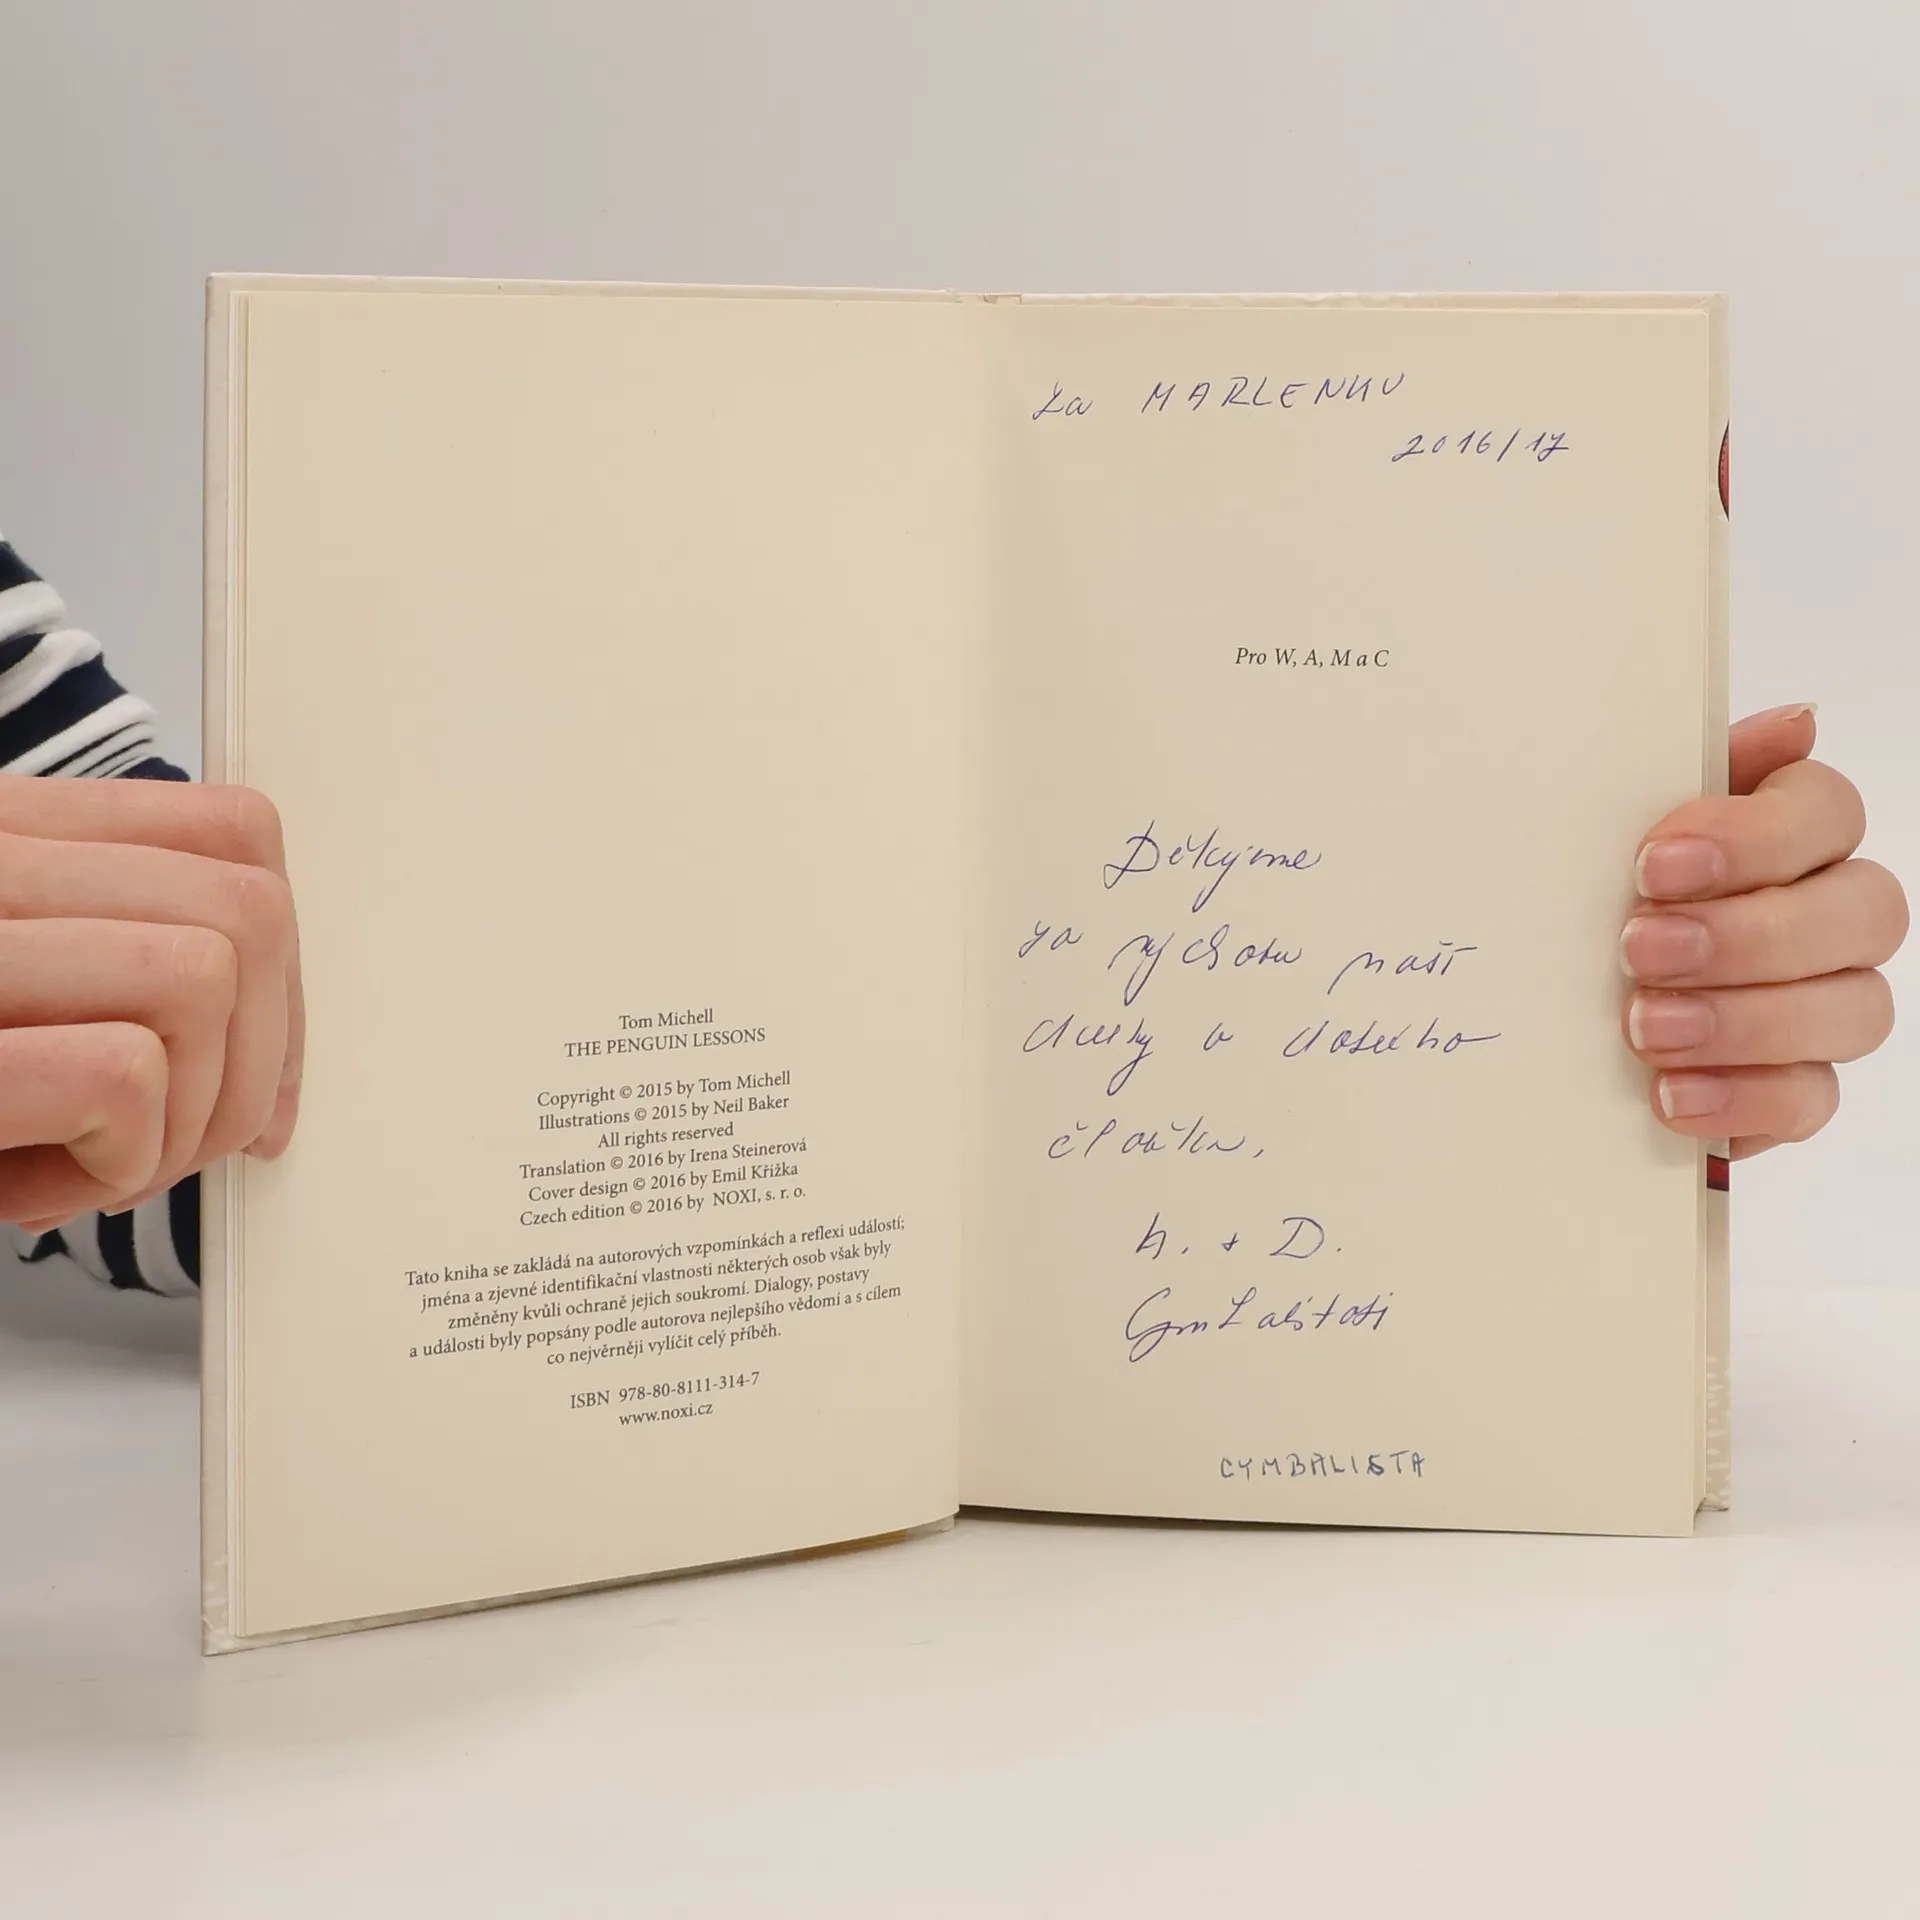 Tom Michell
THE PENGUIN LESSONS
Copyright © 2015 by Tom Michell
Illustrations © 2015 by Neil Baker
All rights reserved
Translation © 2016 by Irena Steinerová
Cover design © 2016 by Emil Křižka
Czech edition © 2016 by NOXI, s. r. o.
Tato kniha se zakládá na autorových vzpomínkách a reflexi událostí;
jména a zjevné identifikační vlastnosti některých osob však byly
změněny kvůli ochraně jejich soukromí. Dialogy, postavy
a události byly popsány podle autora nejlepšího vědomí a s cílem
co nejvěrněji vylíčit celý příběh.
ISBN 978-80-8111-314-7
www.noxi.cz
Za MARLENKU
2016/17
Pro W, A, M a C
Děkujeme
za výchovu naší
dcerky a dobrého
člověka,
+ D.
CYMBALISTA